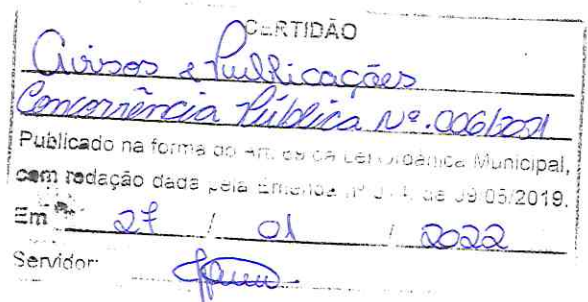 CERTIDÃO
Avisos e Publicações
Concorrência Pública Nº. 006/2021
Publicado na forma do Art. da Lei Orgânica Municipal,
com redação dada pela Emenda nº de 09/05/2019.
Em 27 / 01 / 2022
Servidor: